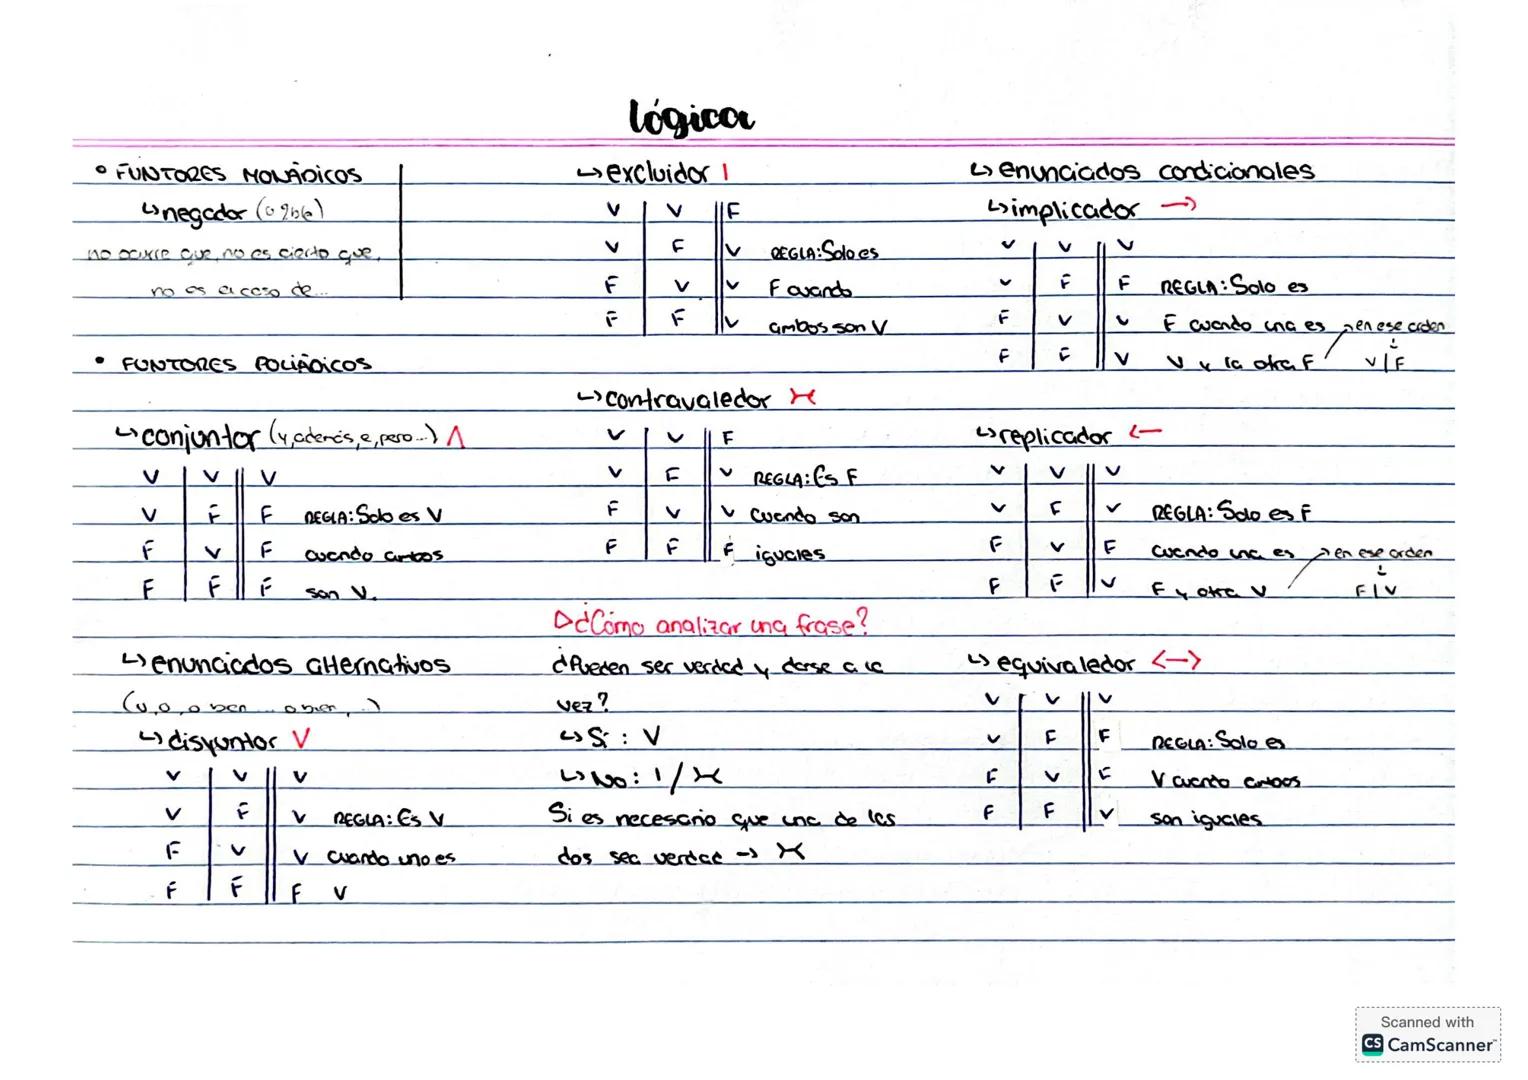 lógica
• FUNTORES MONÁDICOS
↳ negador
no ocurre que, no es cierto que,
no es el caso de...
• FUNTORES POLIÁDICOS
↳ conjuntor (y, además, e, pero...) ∧
V | V || V
V | F || F REGLA: Solo es V
F | V || F cuando ambos
F | F || F son V.
↳ enunciados alternativos
(u, o, o bien ... o bien, ...)
↳ disyuntor V
V | V || V
V | F || V REGLA: Es V
F | V || V cuando uno es
F | F || F V
↳ excluidor |
V | V || F
V | F || V REGLA: Solo es
F | V || V F cuando
F | F || V ambos son V
↳ contravaledor >-<
V | V || F
V | F || V REGLA: Es F
F | V || V cuando son
F | F || F iguales
▷ ¿Cómo analizar una frase?
¿Pueden ser verdad y darse a la
vez?
↳ Sí : V
↳ No : | / >-<
Si es necesario que una de las
dos sea verdad → >-<
↳ enunciados condicionales
↳ implicador →
V | V || V
V | F || F REGLA: Solo es
F | V || V F cuando una es → en ese orden
F | F || V V y la otra F ↓ V | F
↳ replicador ←
V | V || V
V | F || V REGLA: Solo es F
F | V || F cuando una es → en ese orden
F | F || V F y otra V ↓ F | V
↳ equivaledor <->
V | V || V
V | F || F REGLA: Solo es
F | V || F V cuando ambos
F | F || V son iguales
Scanned with
CS CamScanner